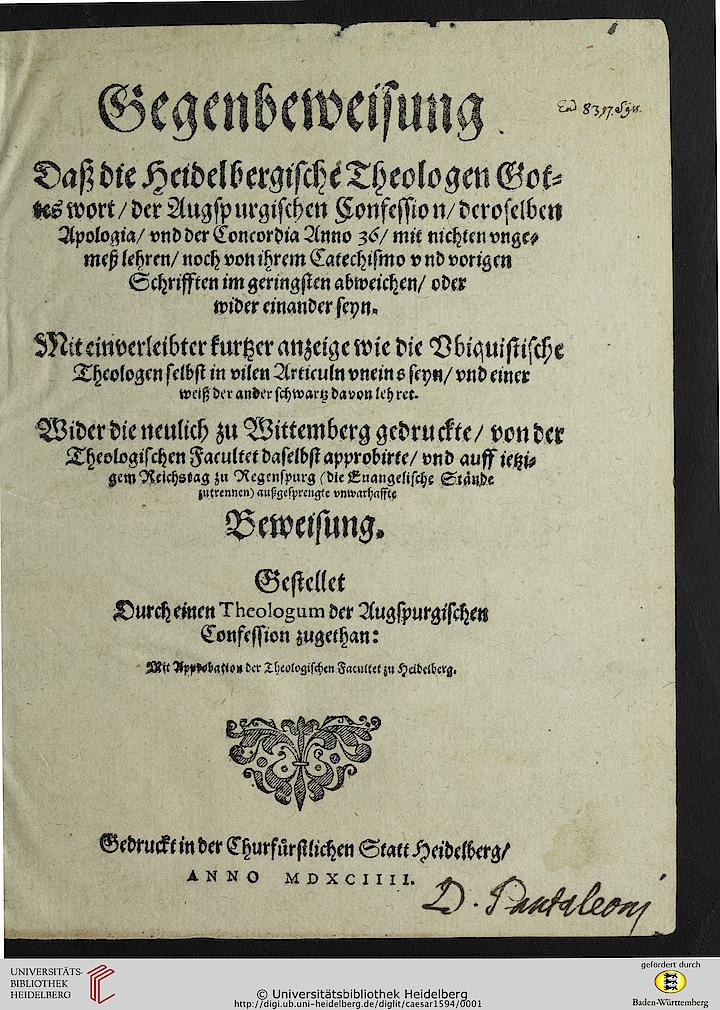 Gegenbeweisung
Daß die Heidelbergische Theologen Got-
tes wort / der Augspurgischen Confession / deroselben
Apologia / vnd der Concordia Anno 36 / mit nichten vnge-
meß lehren / noch von ihrem Catechismo vnd vorigen
Schrifften im geringsten abweichen / oder
wider einander seyn.
Mit einverleibter kurtzer anzeige wie die Vbiquistische
Theologen selbst in vilen Articuln vneins seyn / vnd einer
weiß der ander schwartz davon lehret.
Wider die neulich zu Wittemberg gedruckte / von der
Theologischen Facultet daselbst approbirte / vnd auff ietzi-
gem Reichstag zu Regenspurg (die Euangelische Stände
zutrennen) außgesprengte vnwarhaffte
Beweisung.
Gestellet
Durch einen Theologum der Augspurgischen
Confession zugethan:
Mit Approbation der Theologischen Facultet zu Heidelberg.
Gedruckt in der Churfürstlichen Statt Heidelberg /
ANNO MDXCIIII.
D. Pantaleonj
UNIVERSITÄTS-
BIBLIOTHEK
HEIDELBERG
© Universitätsbibliothek Heidelberg
http://digi.ub.uni-heidelberg.de/diglit/caesar1594/0001
gefördert durch
Baden-Württemberg